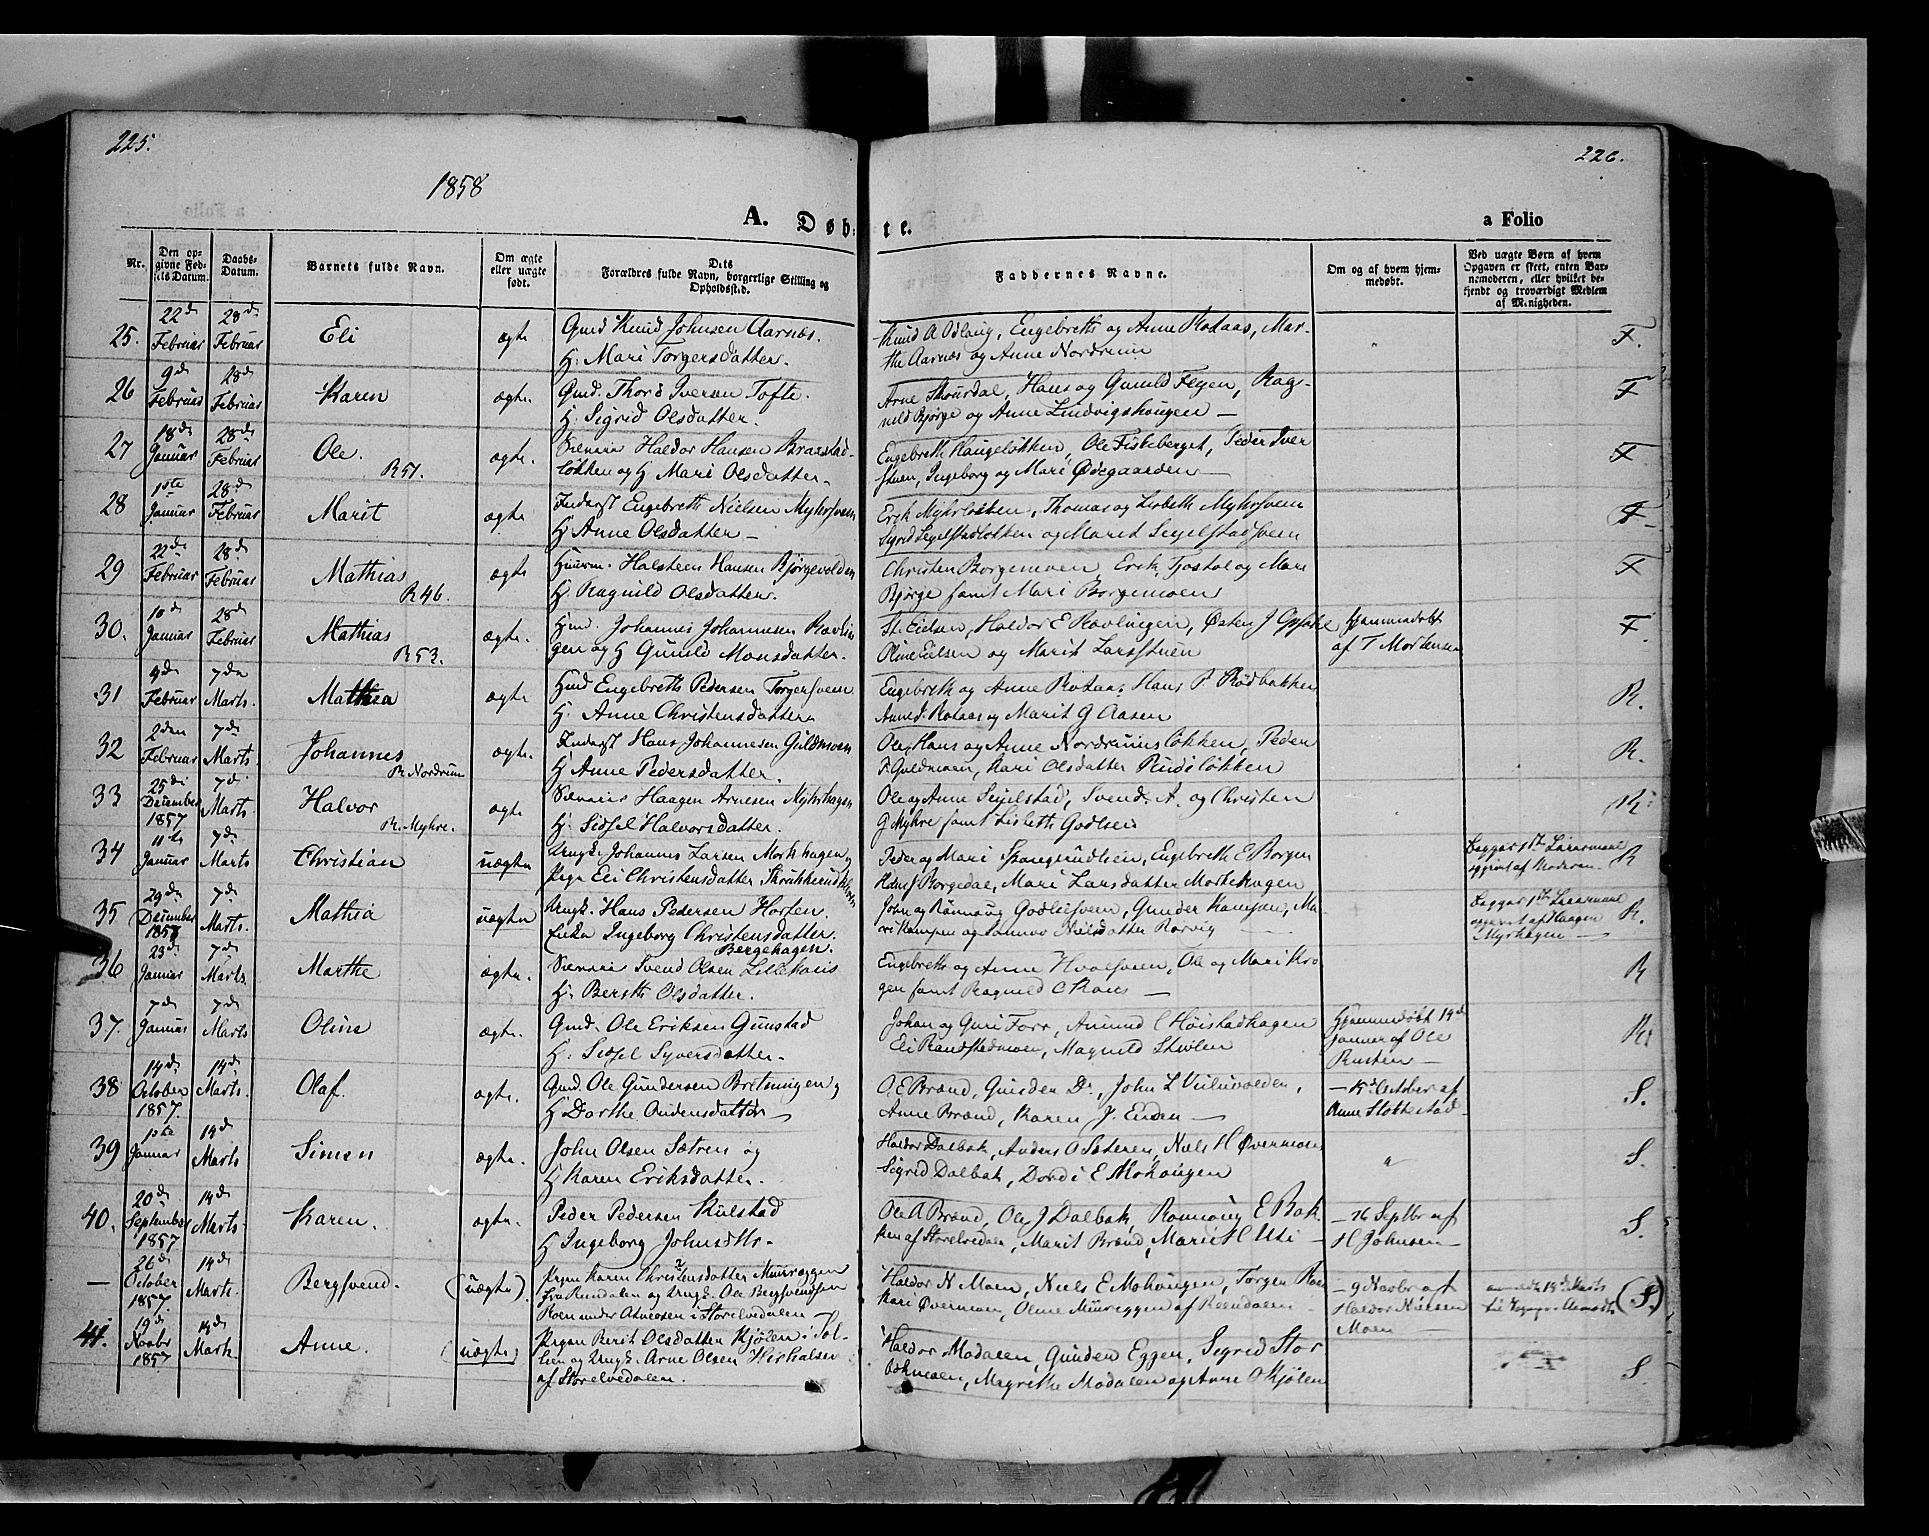 225.
226.
1858
A. Døb-
te.
a Folio
Nr.
Den op-
givne Fød-
sels Datum.
Daabs-
Datum.
Barnets fulde Navn.
Om ægte
eller uægte
født.
Dets
Forældres fulde Navn, borgerlige Stilling og
Opholdssted.
Faddernes Navne.
Om og af hvem hjem-
medøbt.
Ved uægte Børn af hvem
Opgaven er skeet, enten Bar-
nemoderen, eller hvilket be-
kjendt og troværdigt Medlem
af Menigheden.
25. 22de Februar 28de Februar Eli ægte Gmd Knud Johnsen Aarnæs.
H. Mari Torgersdatter.
Knud A Odlaug, Engebreth og Anne Rotaas, Mar-
the Aarnæs og Anne Nordrum
F.
26 9de Februar 28de Februar Karen ægte. Gmd. Thord Iversen Tofte.
H. Sigrid Olsdatter.
Arne Skourdal, Hans og Gunild Fegen, Rag-
nild Bjørge og Anne Lindvigshougen —
F
27 18de Januar 28de Februar Ole. R 57. ægte. Haldor Hansen
løkken og H Mari Olsdatter.
Engebreth Haugeløkken, Ole Fiskeberget, Peder Iver
stuen, Ingeborg og Mari Ødegaarden
F
28 1ste Januar 28de Februar Marit ægte Inderst Engebreth Nielsen Myhrsveen
H. Anne Olsdatter —
Erik Myhrløkken, Thomas og Lisbeth Myhrsveen
Sigrid Seielstadløkken og Marit Seielstadsveen
F
29 22de Februar 28de Februar Mathias R 46. ægte Halsteen Hansen Bjørgevolden
H. Ragnild Olsdatter.
Christen Borgemoen Erik, Tjostol og Mari
Bjørge samt Mari Borgemoen
F
30. 10de Januar 28de Februar Mathias R 53. ægte. Hmd. Johannes Johannesen Rævlin
gen og H Gunild Monsdatter.
Haldor E Rævlingen, Østen J
Oline Eilsen og Marit Larsstuen
Hjemmedøbt
af T Mortensen
F.
31 9de Februar 7de Marts. Mathea ægte Hmd Engebreth Pedersen Torgersveen
H. Anne Christensdatter
Engebreth og Anne Rotaas, Hans P. Rødbakken
Rotaas og Marit G Aasen
R.
32 2den Februar 7de Marts. Johannes R. Nordrum ægte. Inderst Hans Johannesen Guldmoen
H Anne Pedersdatter.
Ole, Hans og Anne Nordrumsløkken, Peder
P. Guldmoen, Kari Olsdatter Rudsløkken
R.
33 25de December 1857 7de Marts. Halvor R. Myhre. ægte Haagen Arnesen Myhrhagen
H. Sidsel Halvorsdatter.
Ole og Anne Seielstad, Svend A. og Christen
G Myhre samt Lisbeth Godlien
R.
34 11te Januar 7de Marts Christian uægte Ungk. Johannes Larsen Morkhagen,
Pige Eli Christensdatter
Peder og Mari Spangrudlien, Engebreth E Borgen
Hans Borgedal, Mari Larsdatter Morkehagen
Begges 1ste Leiermaal
opgivet af Moderen
R
35 29de December 1857 7de Marts. Mathea uægte Ungk. Hans Pedersen Horsen.
Enke Ingeborg Christensdatter.
Bergehagen.
John og Rønnaug Godlidsveen, Gunder Kampen, Ma-
ri Kampen og Nielsdatter Rørvig
Begges 1ste Leiermaal
opgivet af Haagen
Myrhagen —
R.
36 23de Januar 7de Marts. Marthe ægte. Svend Olsen Lillekruis
H. Berthe Olsdatter.
Engebreth og Anne Hvalsveen, Ole og Mari Kro-
gen samt Ragnild —
R
37. 7de Januar 7de Marts Oline ægte. Gmd. Ole Eriksen Gunstad
H. Sidsel Syversdatter.
Johan og Guri Forr, Amund C Høistadhagen
Eli Randstadmoen, Magnild
Hjemmedøbt 14de
Januar af Ole
Rusten —
R.
38 14de October 1857. 14de Marts. Olaf. ægte. Gmd. Ole Gundersen Bretningen,
H Dorthe Andersdatter —
O. E Brænd, Gunder Do, John L
Anne Brænd, Karen J. Enden —
— 15de October af
Anne Slottestad —
S.
39 1ste Januar 14de Marts Simen ægte. John Olsen Sætren og
H Karen Eriksdatter.
Haldor Dalbak, Anders O Sæteren, Niels H Øvermoen
Sigrid Dalbak, Dordi E Mohaugen
"
S.
40. 20de September 1857 14de Marts. Karen. ægte. Peder Pedersen Kulstad
H Ingeborg Johnsdtr.
Ole A Brænd, Ole J Dalbak, Rønnoug E Bak-
ken af Storelvedalen, Marit Brænd, Mari H Uti —
— 26 Septbr af
H Johnsen —
S.
— 26de October 1857. 14de Marts. Bergsvend. (uægte). Pigen Karen Christensdatter Murveggen
fra Rendalen og Ungk. Ole Bergsvendsen
Moen under i Storelvedalen
Haldor N Moen, Niels E Mohaugen, Torger Moen
Kari Øvermoen, Oline Murveggen af Rendalen
— 9 Novbr af
Haldor Nielsen
Moen —
(S.)
41. 19de Novbr 1857 14de Marts. Anne. (uægte) Pigen Berit Olsdatter Kjølen i Sol-
lien og Ungk. Arne Olsen
af Storelvedalen.
Haldor Modalen, Gunder Eggen, Sigrid Stor
bækmoen, Magrethe Modalen og Anne O Kjølen
S.